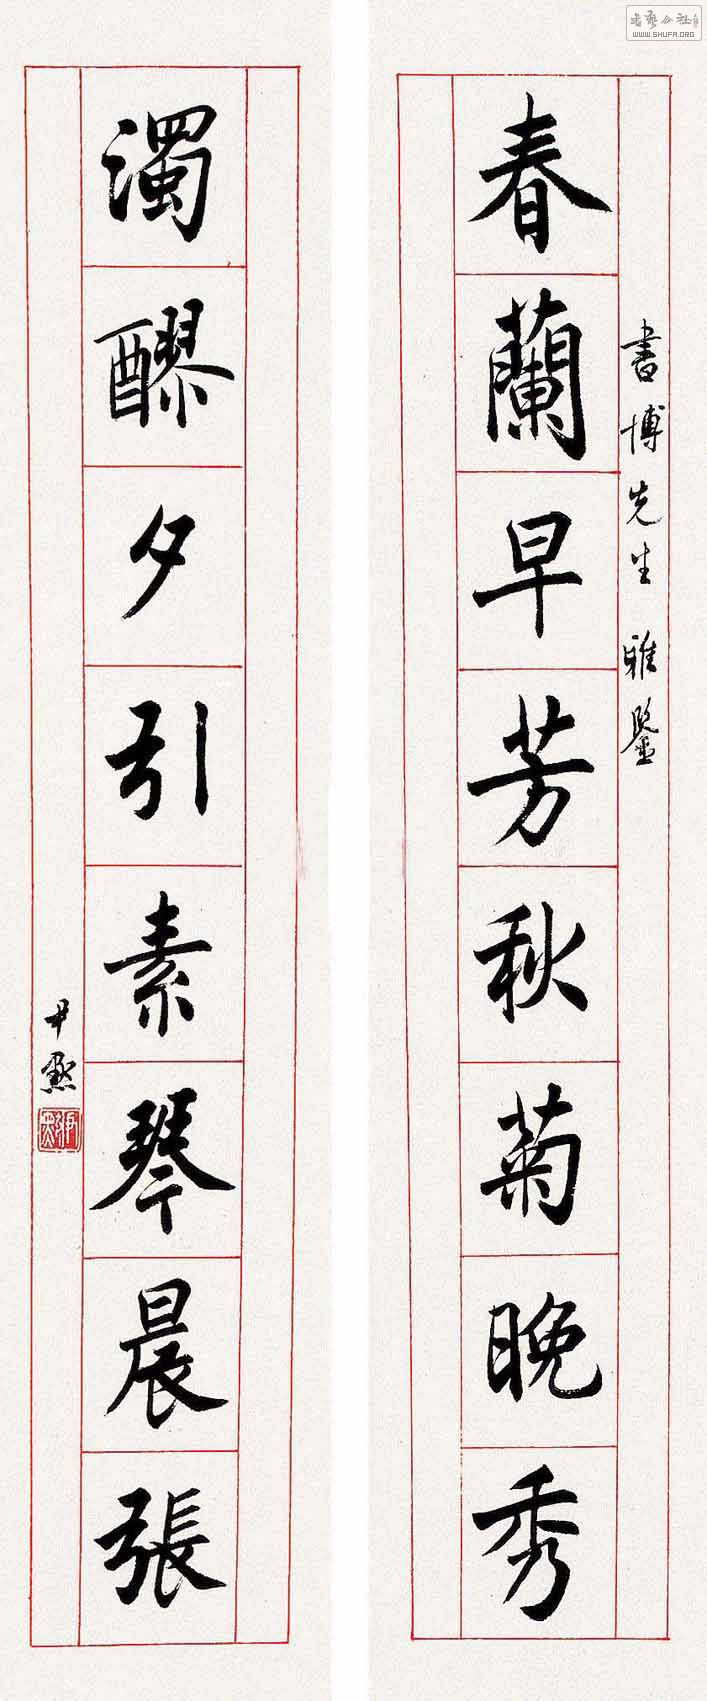 春蘭早芳秋菊晚秀
書博先生雅鑒
濁醪夕引素琴晨張
尹默
書藝公社
WWW.SHUFA.ORG